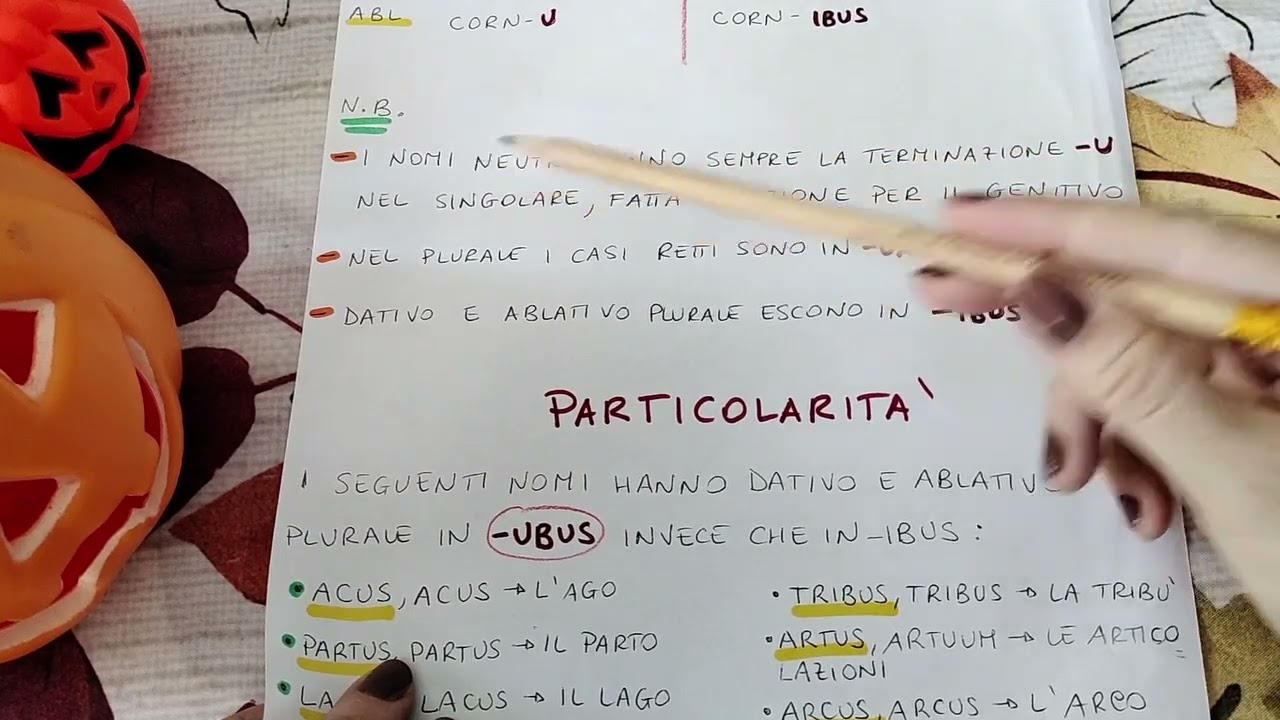 ABL CORN-U CORN-IBUS
N.B.
- I NOMI SEMPRE LA TERMINAZIONE -U
NEL SINGOLARE, FATTA PER IL GENITIVO
- NEL PLURALE I CASI RETTI SONO IN
- DATIVO E ABLATIVO PLURALE ESCONO IN -IBUS
PARTICOLARITA'
I SEGUENTI NOMI HANNO DATIVO E
PLURALE IN -UBUS INVECE CHE IN -IBUS:
• ACUS, ACUS → L'AGO
• PARTUS, PARTUS → IL PARTO
• LACUS → IL LAGO
• TRIBUS, TRIBUS → LA TRIBU'
• ARTUS, ARTUUM → LE ARTICO
LAZIONI
• ARCUS, ARCUS → L'ARCO